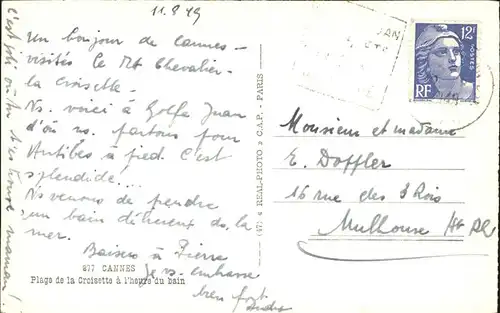 11.8.49
Un bonjour de Cannes -
visités le Mt Chevalier -
la Croisette -
Ns. voici à Golfe Juan
d'où ns. partons pour
Antibes à pied. C'est
splendide...
Ns venons de prendre
un bain dément ds. la
mer.
Baisers à Pierre
Je vs. embrasse
bien fort.
C'est joli où tu t'es trouvé maman!
877 CANNES
Plage de la Croisette à l'heure du bain
(47) « REAL-PHOTO » C.A.P. - PARIS
JUAN
12F
POSTES
RF
Monsieur et madame
E. Doffler
16 rue des 3 Rois
Mulhouse Ht Rh